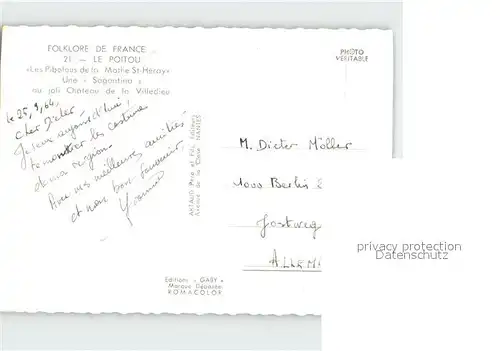 FOLKLORE DE FRANCE
21 — LE POITOU
«Les Pibolous de la Mothe St-Héray»
Une « Sagantina »
au joli Château de la Villedieu
PHOTO
VERITABLE
le 25,9,64,
Cher Dieter
Je veux aujourd'hui
te montrer les costumes
de ma région.
meilleures amitiés
et mon bon souvenir,
Yvonne
ARTAUD Père et Fils, Editeurs
Avenue de la Close NANTES
M. Dieter Möller
1000 Berlin
Jostweg
ALLEM
privacy protection
Datenschutz
Editions «GABY»
Marque Déposée
ROMACOLOR